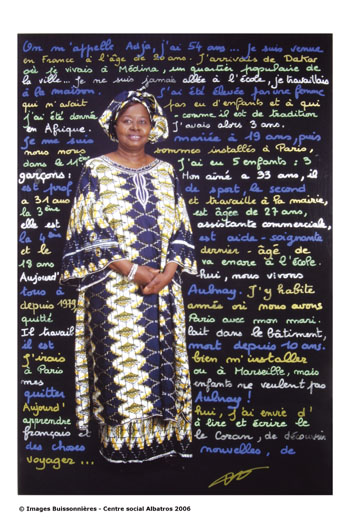 On m'appelle Adja, j'ai 54 ans... Je suis venue
en France à l'âge de 20 ans. J'arrivais de Dakar
où je vivais à Médina, un quartier populaire de
la ville... Je ne suis jamais allée à l'école, je travaillais
à la maison. J'ai été élevée par une femme
qui n'avait pas eu d'enfants et à qui
j'ai été donnée - comme il est de tradition
en Afrique. J'avais alors 3 ans.
Je me suis mariée à 19 ans, puis
nous nous sommes installés à Paris,
dans le J'ai eu 5 enfants : 3
garçons : Mon aîné a 33 ans, il
est prof de sport, le second
a 31 ans et travaille à la mairie,
la 3ème est âgée de 27 ans,
elle est assistante commerciale,
la 4 est aide-soignante
et le dernier - âgé de
18 ans va encore à l'école.
Aujourd'hui, nous vivons
tous à Aulnay. J'y habite
depuis 1979 année où nous avons
quitté Paris avec mon mari.
Il travaillait dans le bâtiment,
il est mort depuis 10 ans.
J'irais bien m'installer
à Paris ou à Marseille, mais
mes enfants ne veulent pas
quitter Aulnay !
Aujourd'hui, j'ai envie d'
apprendre à lire et écrire le
français et le Coran, de découvrir
des choses nouvelles, de
voyager...
© Images Buissonnières - Centre social Albatros 2006